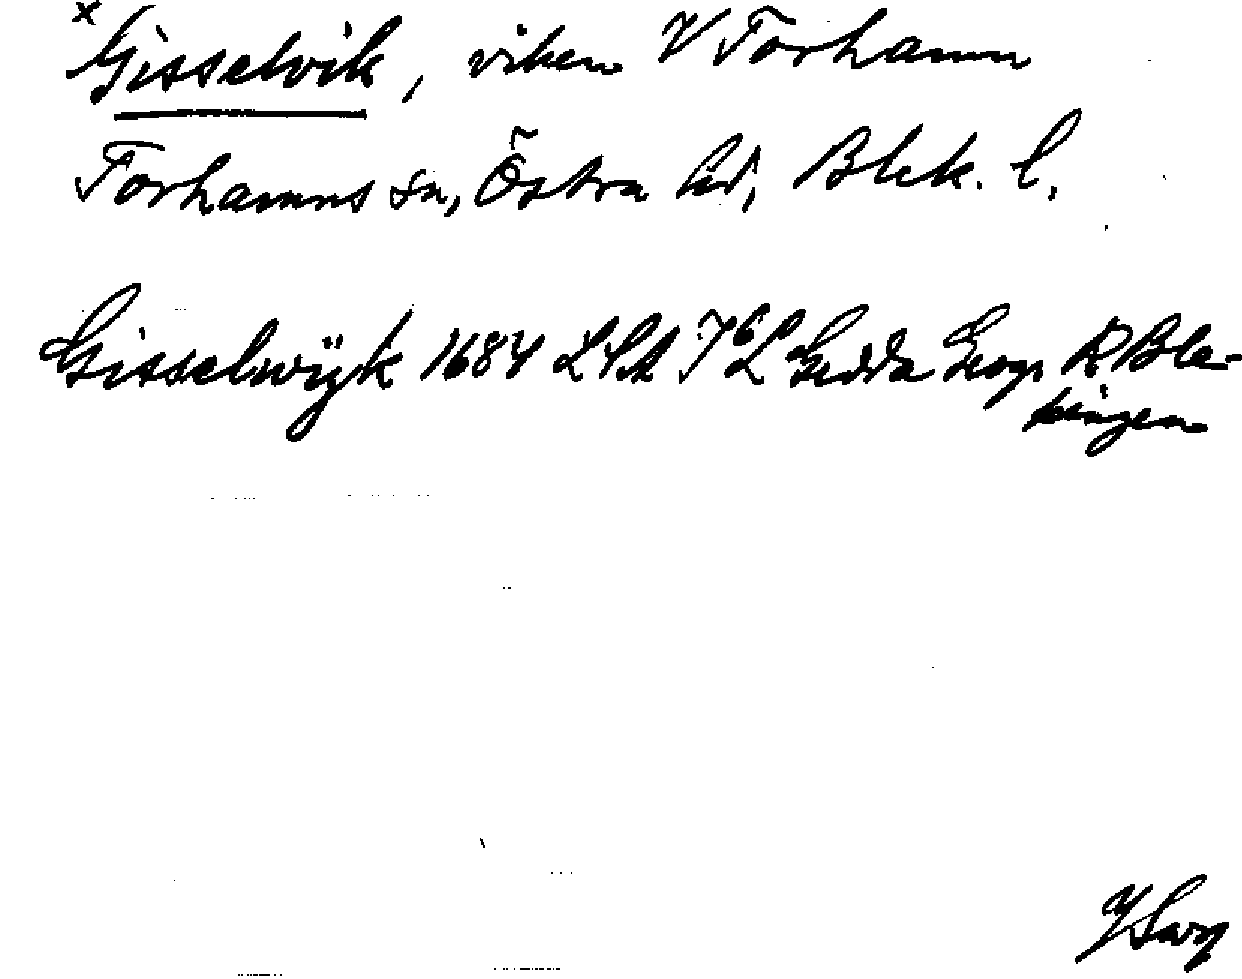 x Gisselvik, viken V Torhamn
Torhamns sn, Östra hd, Blek. l.
Gisselwÿk 1684 LSA Gedda Geogr R Ble-
kingen